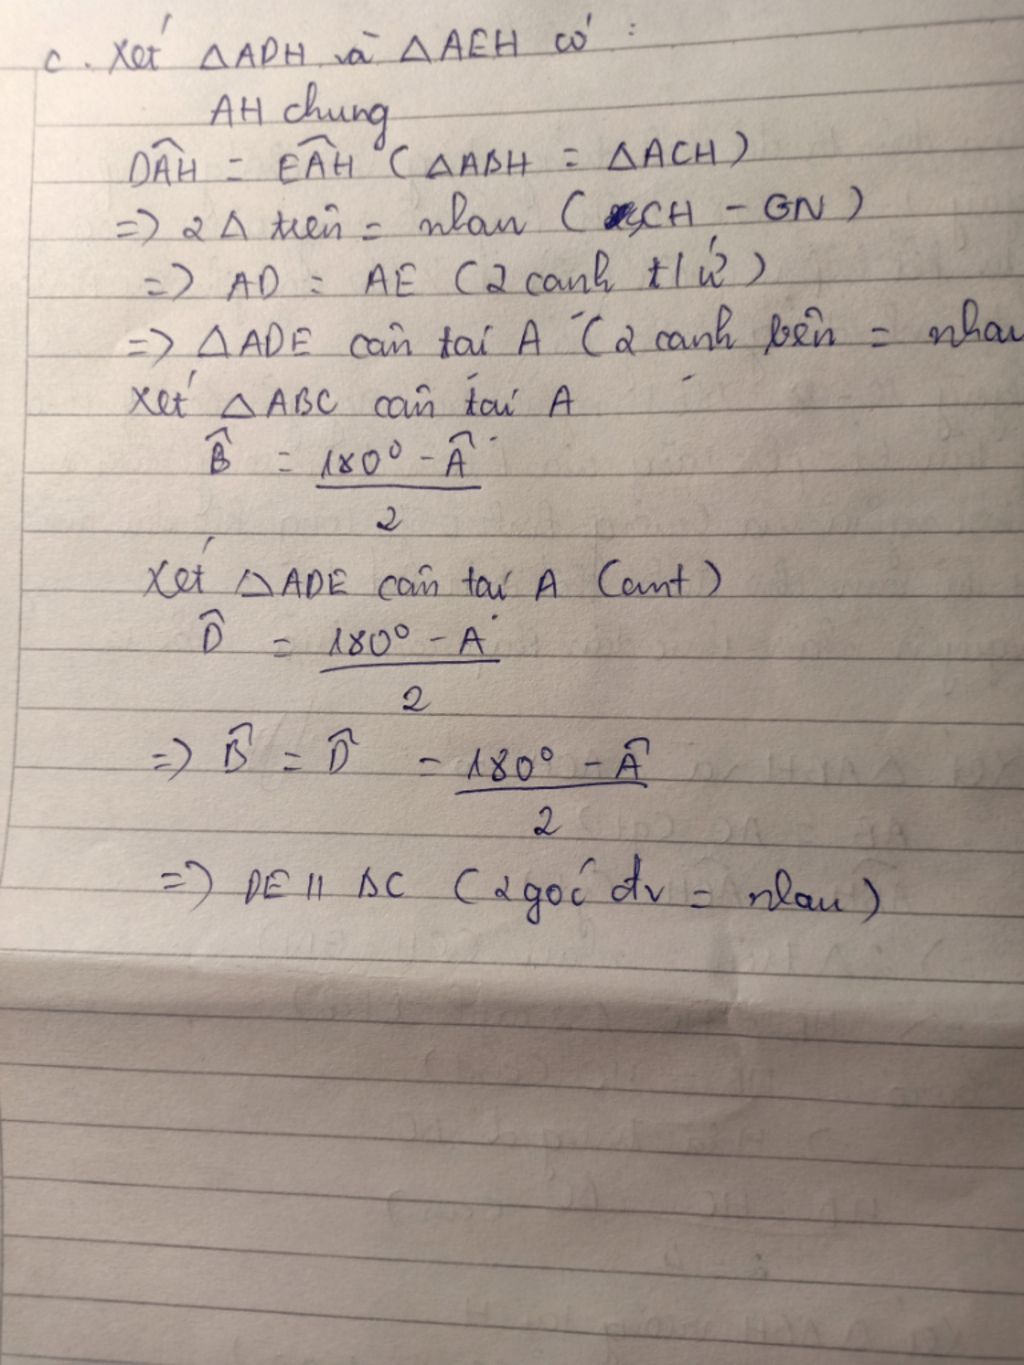 c. Xét △ADH và △AEH có :
AH chung
D̂AH = ÊAH (△ABH = △ACH)
=> 2△ trên = nhau (CH - GN)
=> AD = AE (2 cạnh t/ứ)
=> △ADE cân tại A (2 cạnh bên = nhau
Xét △ABC cân tại A
B̂ = 180° - Â
2
Xét △ADE cân tại A (cmt)
D̂ = 180° - A
2
=> B̂ = D̂ = 180° - Â
2
=> DE // BC (2 góc đv = nhau)